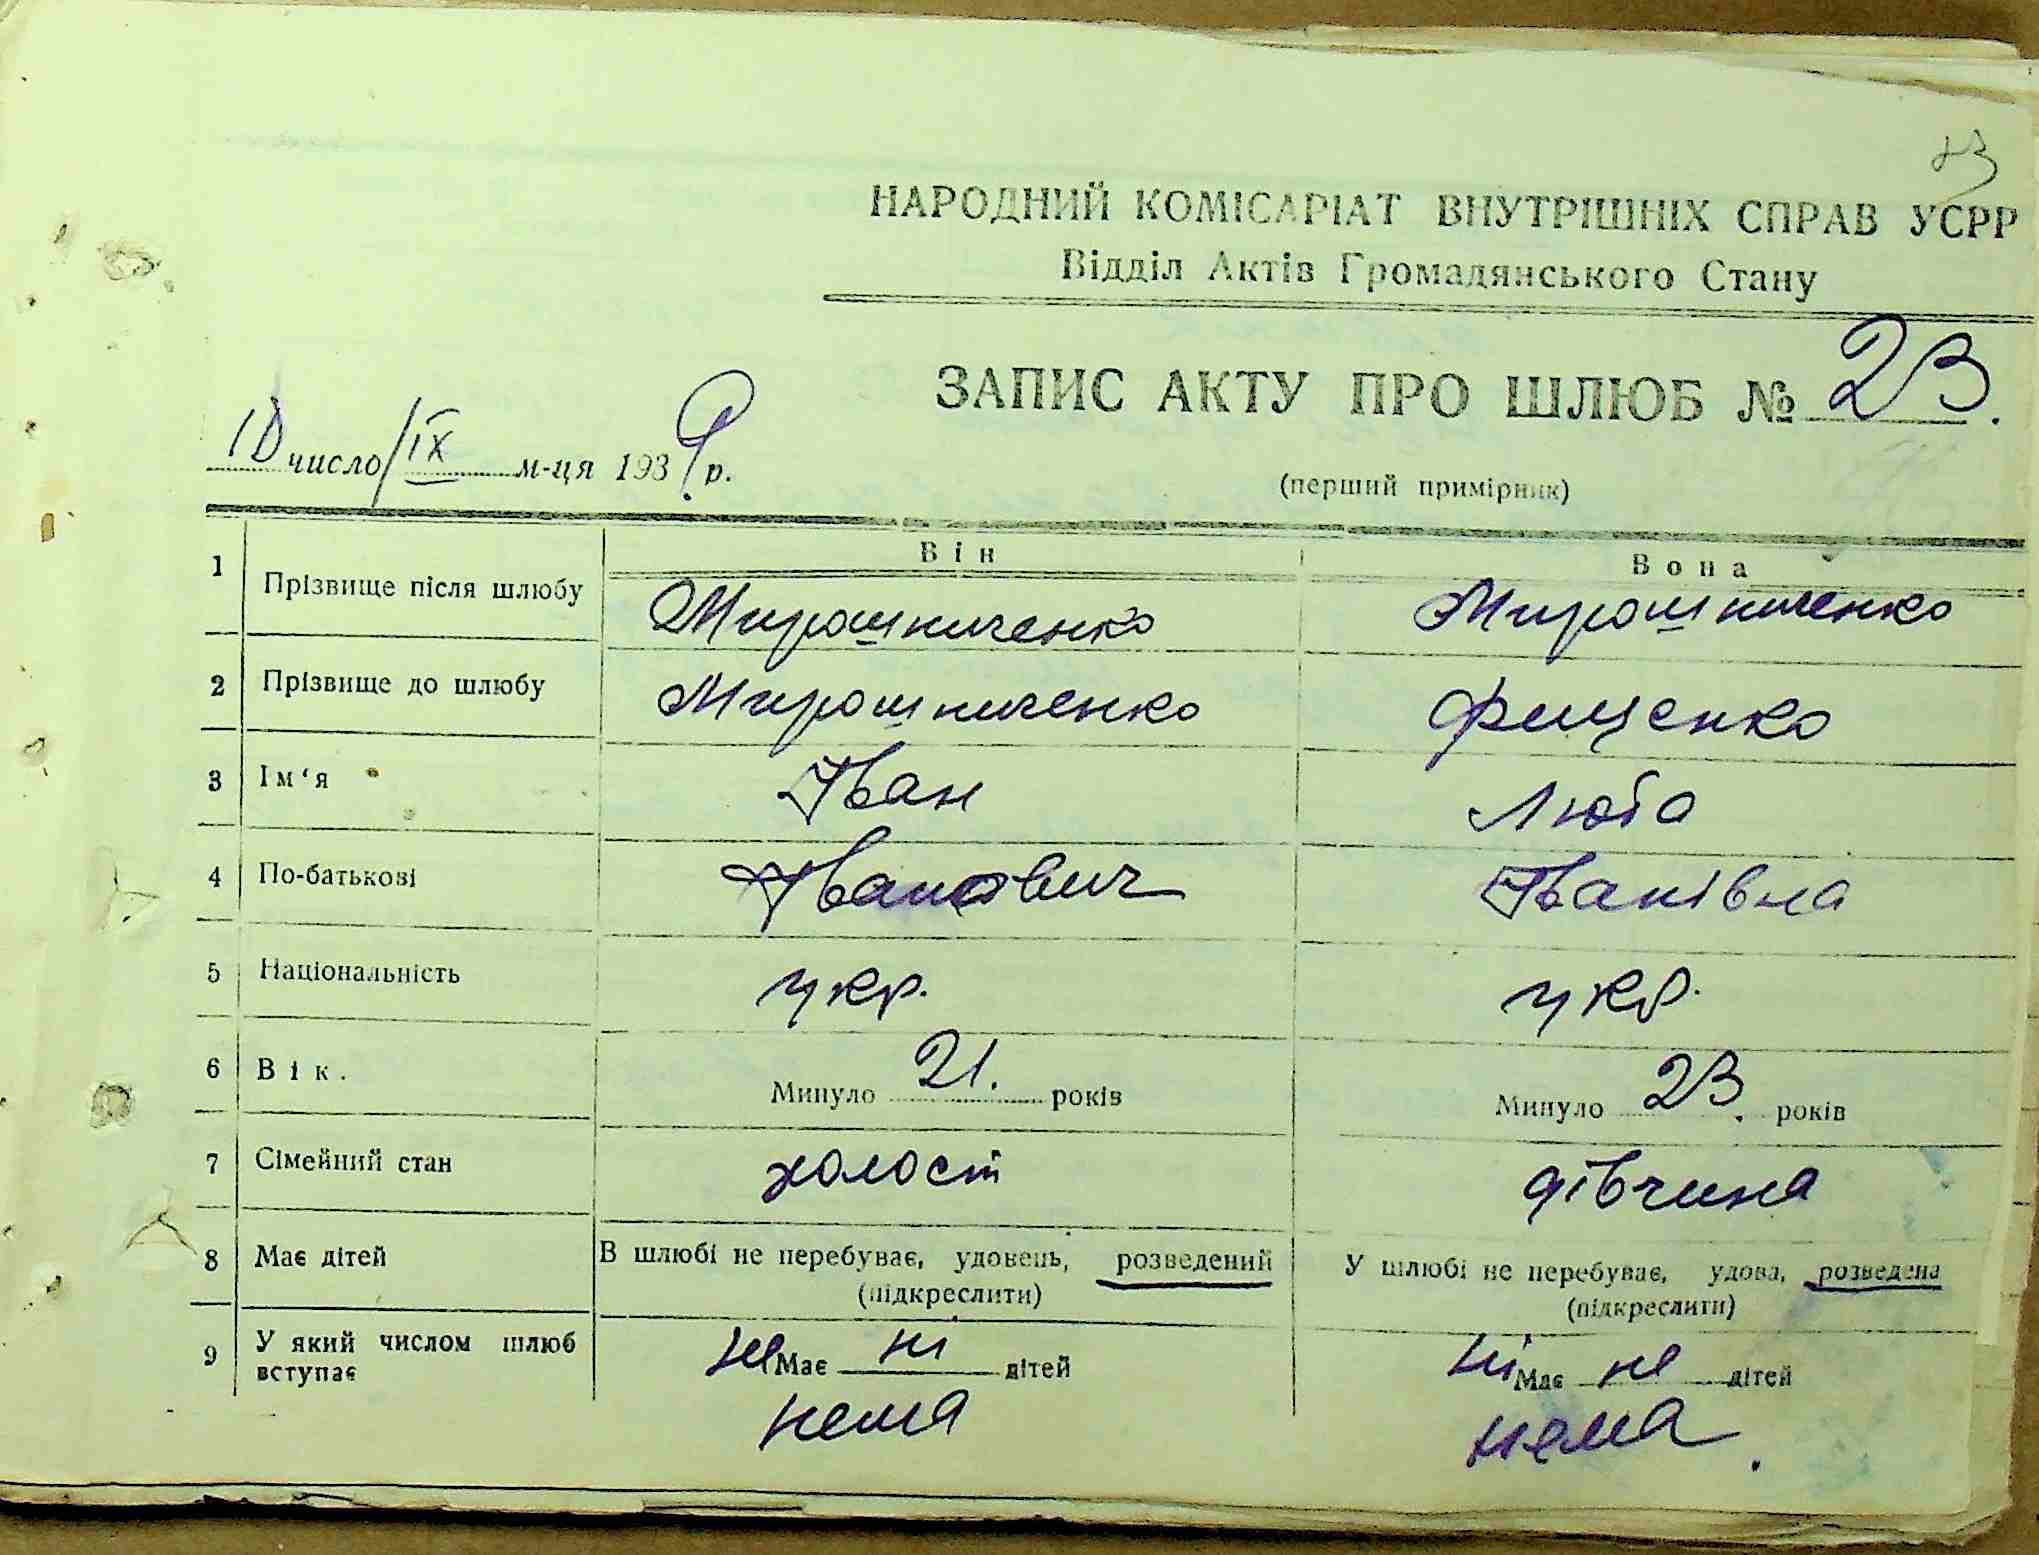 23
НАРОДНИЙ КОМІСАРІАТ ВНУТРІШНІХ СПРАВ УСРР
Відділ Актів Громадянського Стану
ЗАПИС АКТУ ПРО ШЛЮБ № 23.
число/IX м-ця 1939 р.
(перший примірник)
Він Вона
1 Прізвище після шлюбу Мирошниченко Мирошниченко
2 Прізвище до шлюбу Мирошниченко Фищенко
3 Ім‘я Іван Люба
4 По-батькові Іванович Іванівна
5 Національність укр. укр.
6 Вік. Минуло 21. років Минуло 23. років
7 Сімейний стан холост дівчина
8 Має дітей В шлюбі не перебуває, удовець, розведений У шлюбі не перебуває, удова, розведена
(підкреслити) (підкреслити)
9 У який числом шлюб вступає не Має ні дітей ні Має не дітей
нема нема.